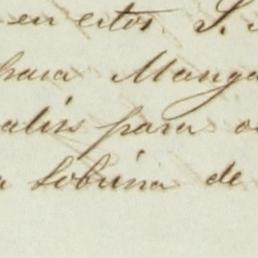 en estos S.
para Manga
salir para
a Sobrina de